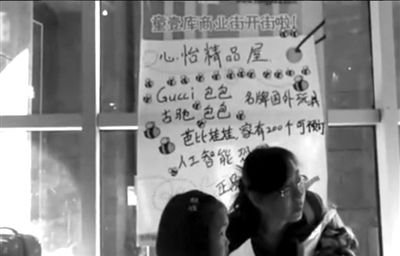 童壹库商业街开街啦！
心怡精品屋
Gucci 包包 名牌国外玩具
古驰 包包
芭比娃娃,家有200个可预订
人工智能恐